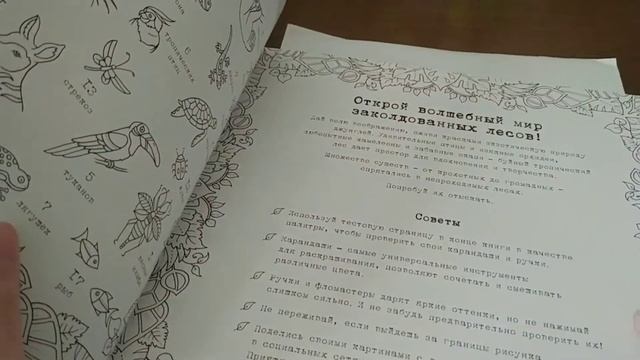 6
тропических
птиц
13
стрекоз
5
туканов
7
лягушек
17
рыб
Открой волшебный мир
заколдованных лесов!
Дай волю воображению, оживи красками экзотическую природу
джунглей. Удивительные птицы и
любопытные хамелеоны и забавные – буйный тропический
лес дает простор для вдохновения и творчества.
Множество существ – от крохотных до громадных –
спрятались в непроходимых лесах.
Попробуй их отыскать.
Советы
Используй тестовую страницу в конце книги в качестве
палитры, чтобы проверить свои карандаши и ручки.
Карандаши – самые универсальные инструменты
для раскрашивания, позволяют сочетать и смешивать
различные цвета.
Ручки и фломастеры дарят яркие оттенки, но не нажимай
слишком сильно. И не забудь предварительно проверить их!
Не переживай, если выйдешь за границы рисунка.
Поделись своими картинами с
в социальных